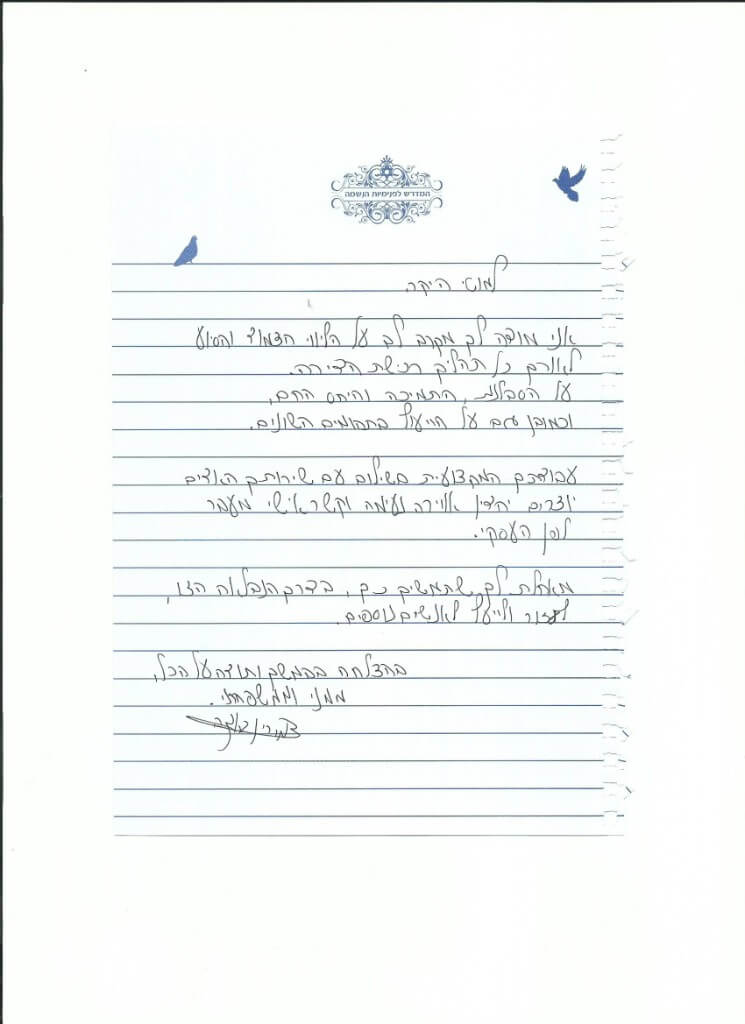 המדרש לפנימיות הנשמה
למוטי היקר,
אני מודה לך מקרב לב על הליווי הצמוד והסיוע
לאורך כל תהליך רכישת הדירה.
על הסבלנות, התמיכה והיחס החם,
וכמובן גם על הייעוץ בתחומים השונים.
עבודתכם המקצועית בשילוב עם שירותכם האדיב
יוצרים יחדיו אווירה נעימה וקשר אישי מעבר
לפן העסקי.
מאחלת לך שתמשיכו כך, בדרך הנפלאה הזו,
לעזור ולייעץ לאנשים נוספים.
בהצלחה בהמשך ותודה על הכל,
ממני וממשפחתי.